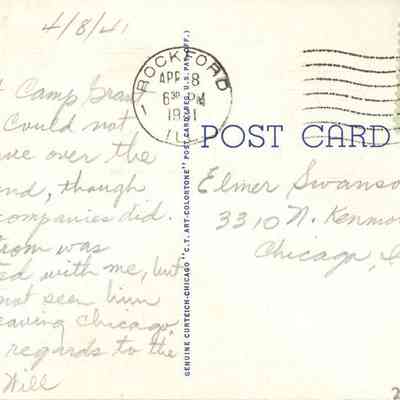 4/8/41
Camp Gran
Could not
ve over the
nd, though
companies did.
rom was
ed with me, but
not seen him
eaving Chicago,
regards to the
Will
ROCKFORD
APR 8
6 30 PM
1941
ILL
POST CARD
Elmer Swanso
3310 N. Kenmo
Chicago,
GENUINE CURTEICH-CHICAGO "C.T. ART-COLORTONE" POST CARD (REG. U.S. PAT. OFF.)